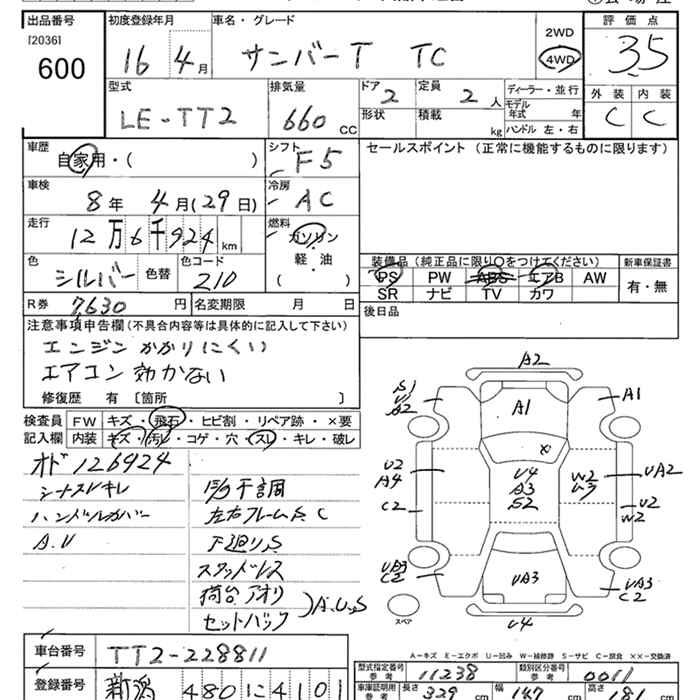 出品番号 初度登録年月 車名・グレード 評価点
[2036] 600 16 4月 サンバーT TC 2WD 4WD 3.5
型式 排気量 ドア 定員 ディーラー・並行 外装 内装
LE-TT2 660 CC 2 2人 モデル年式 年 C C
形状 積載 kg ハンドル 左・右
車歴 シフト セールスポイント (正常に機能するものに限ります)
自家用・( ) F5
車検 冷房
8年 4月(29日) AC
走行 燃料
12万6千924km ガソリン
色 色替 色コード 軽・油
シルバー 210 ( )
装備品(純正品に限り○をつけてください) 新車保証書
PS PW ABS エアB AW 有・無
SR ナビ TV カワ
R券 7,630円 名変期限 月 日
後日品
注意事項申告欄(不具合内容等は具体的に記入して下さい)
エンジンかかりにくい
エアコン効かない
修復歴 有 〔箇所 〕
検査員 FW キズ・飛石・ヒビ割・リペア跡・×要
記入欄 内装 キズ・汚レ・コゲ・穴・スレ・キレ・破レ
オド126924
シートスレキレ
ハンドルカバー
A.U
左右フレームS.C
下廻りS
スタッドレス
荷台アオリ
セットバック
A.U.S
A2
S1
A2
A1
A1
U2
A4
C2
U4
A3
S2
W2
U3
UA2
U2
W2
UA3
C2
UA3
UA3
C2
U4
スペア
A-キズ E-エクボ U-凹み W-補修跡 S-サビ C-腐食 ××-交換済
車台番号 TT2-228811
型式指定番号 参考 11238 類別区分番号 参考 0011
登録番号 新潟 480 に 4101
車庫証明用 参考 長さ 329cm 幅 149cm 高さ 181cm